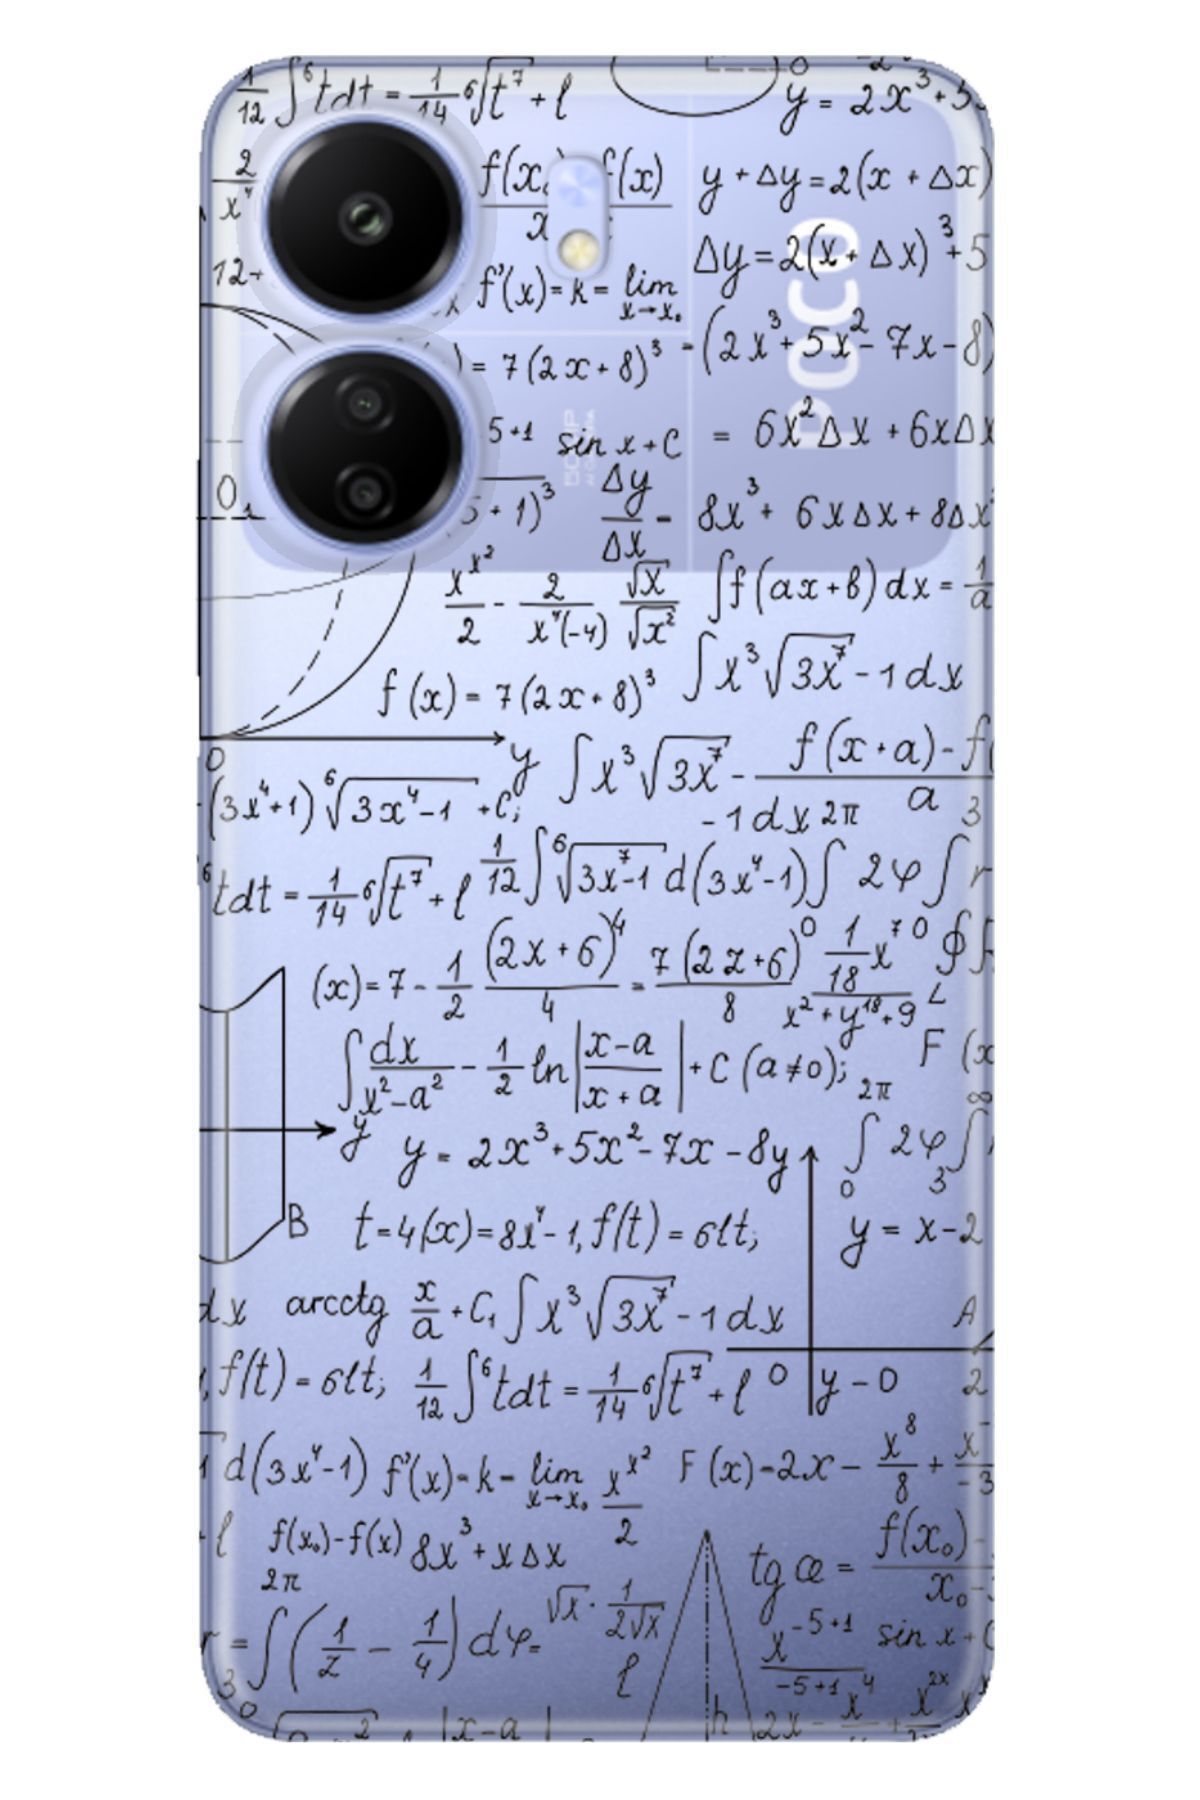 1/12 ∫⁶tdt = 1/14 ⁶√t⁷ + l
y = 2x³+5
2/x⁴
f(x) f(x)
y + Δy = 2(x + Δx)
12+
Δy = 2(x + Δx)³ + 5
POCO
f'(x) = k = lim x→x₀
) = 7(2x + 8)³
-(2x³ + 5x² - 7x - 8)
5+1 sin x + C
= 6x²Δx + 6xΔx
0 1
5 + 1)³
Δy/Δx -
8x³ + 6xΔx + 8Δx
50MP
x^x²/2 - 2/x⁴(-4) √x/√x²
∫f(ax + b) dx = 1/a
f(x) = 7(2x + 8)³
∫x³√3x⁷ - 1 dx
0 y
∫x³√3x⁷ -
-1dx 2π
f(x + a) - f(
a 3
(3x⁴+1) ⁶√3x⁴-1 + C;
⁶tdt = 1/14 ⁶√t⁷ + l
1/12 ∫⁶√3x⁷-1 d(3x⁴-1) ∫ 2φ ∫ r
(x) = 7 - 1/2 (2x + 6)⁴/4 = 7(2z+6)⁰/8
1/18 x⁷⁰ ∮ F
x² + y¹⁸ + 9 L
∫dx/x²-a² - 1/2 ln|x-a/x+a| + C (a≠0);
F (x
2π ∞
y y = 2x³ + 5x² - 7x - 8y
∫ 2φ ∫
0 3
B t = 4(x) = 8x⁴ - 1, f(t) = 6lt;
y = x-2
dx arcctg x/a + C₁ ∫x³√3x⁷ - 1 dx
A
, f(t) = 6lt; 1/12 ∫⁶tdt = 1/14 ⁶√t⁷ + l 0 y - 0 2
1 d(3x⁴-1) f'(x) = k = lim x→x₀ x^x²/2
F (x) = 2x - x⁸/8 + x/-3
+ l f(x₀) - f(x) 8x³ + xΔx
tg æ = f(x₀) -/x₀ -
2π
r = ∫(1/z - 1/4) dφ =
√x · 1/2√x
x⁻⁵⁺¹/-5+1 sin x + C
l
30
h 2x - x⁴ + x²ˣ
2 |x-a|